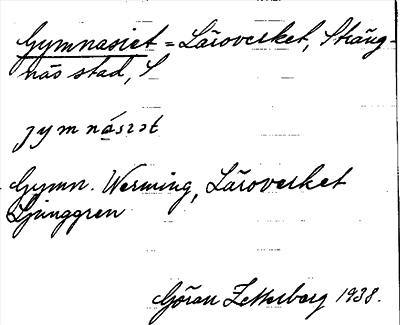 Gymnasiet = Läroverket, Sträng-
näs stad, S
jymnásiət
Gymn. Werming, Läroverket
Ljunggren
Göran Zetterberg 1938.